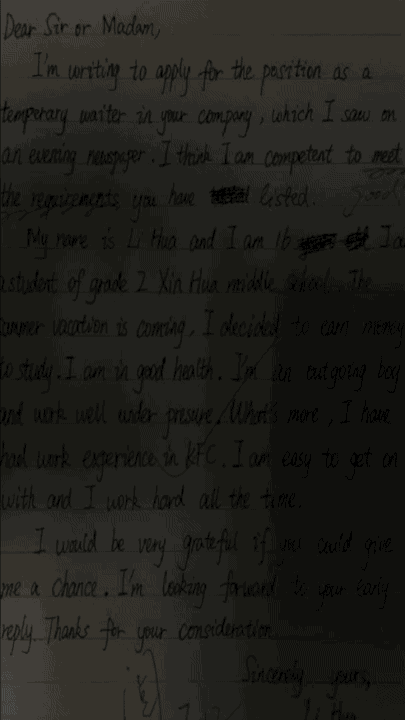 Dear Sir or Madam,
I'm writing to apply for the position as a
temperary waiter in your company, which I saw on
an evening newspaper. I think I am competent to meet
the requirements you have listed. good
My name is Li Hua and I am 16 I a
a student of grade 2 Xin Hua middle school. The
summer vacation is coming, I decided to earn money
to study. I am in good health. I'm an outgoing boy
and work well wider presure. What's more, I have
had work experience in KFC. I am easy to get on
with and I work hard all the time.
I would be very grateful if you could give
me a chance. I'm looking forward to your early
reply. Thanks for your consideration
Sincerely yours,
Li Hua